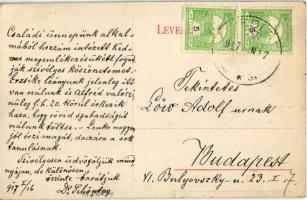 Családi ünnepünk alkal-
mából hozzám intézett ked-
ves megemlékezésükért fogad-
ják szívélyes köszönetemet.
Erzsike leányunk jelenleg itt
van nálunk és Alfréd valószí-
nűleg f. h. 20. körül érkezik
haza, hogy rövid szabadságát
nálunk töltse. — Lenke nagyon
jól érzi magát, dacára a sok
tanulásnak.
Szívélyesen üdvözöljük mind-
nyájan, de különösen
őszinte barátjuk
917 5/16
Dr.
LEVE
917
Tekintetes
Löw Adolf urnak
Budapest
VI. Bulyovszky u. 23. I. 7